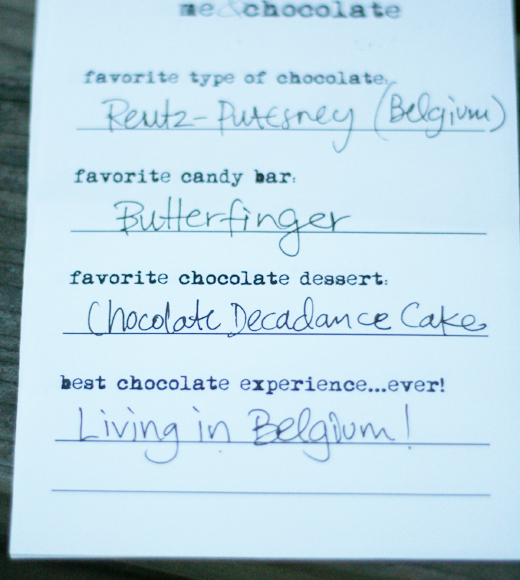 me & chocolate
favorite type of chocolate:
Reutz-Putesney (Belgium)
favorite candy bar:
Butterfinger
favorite chocolate dessert:
Chocolate Decadance Cake
best chocolate experience...ever!
Living in Belgium!